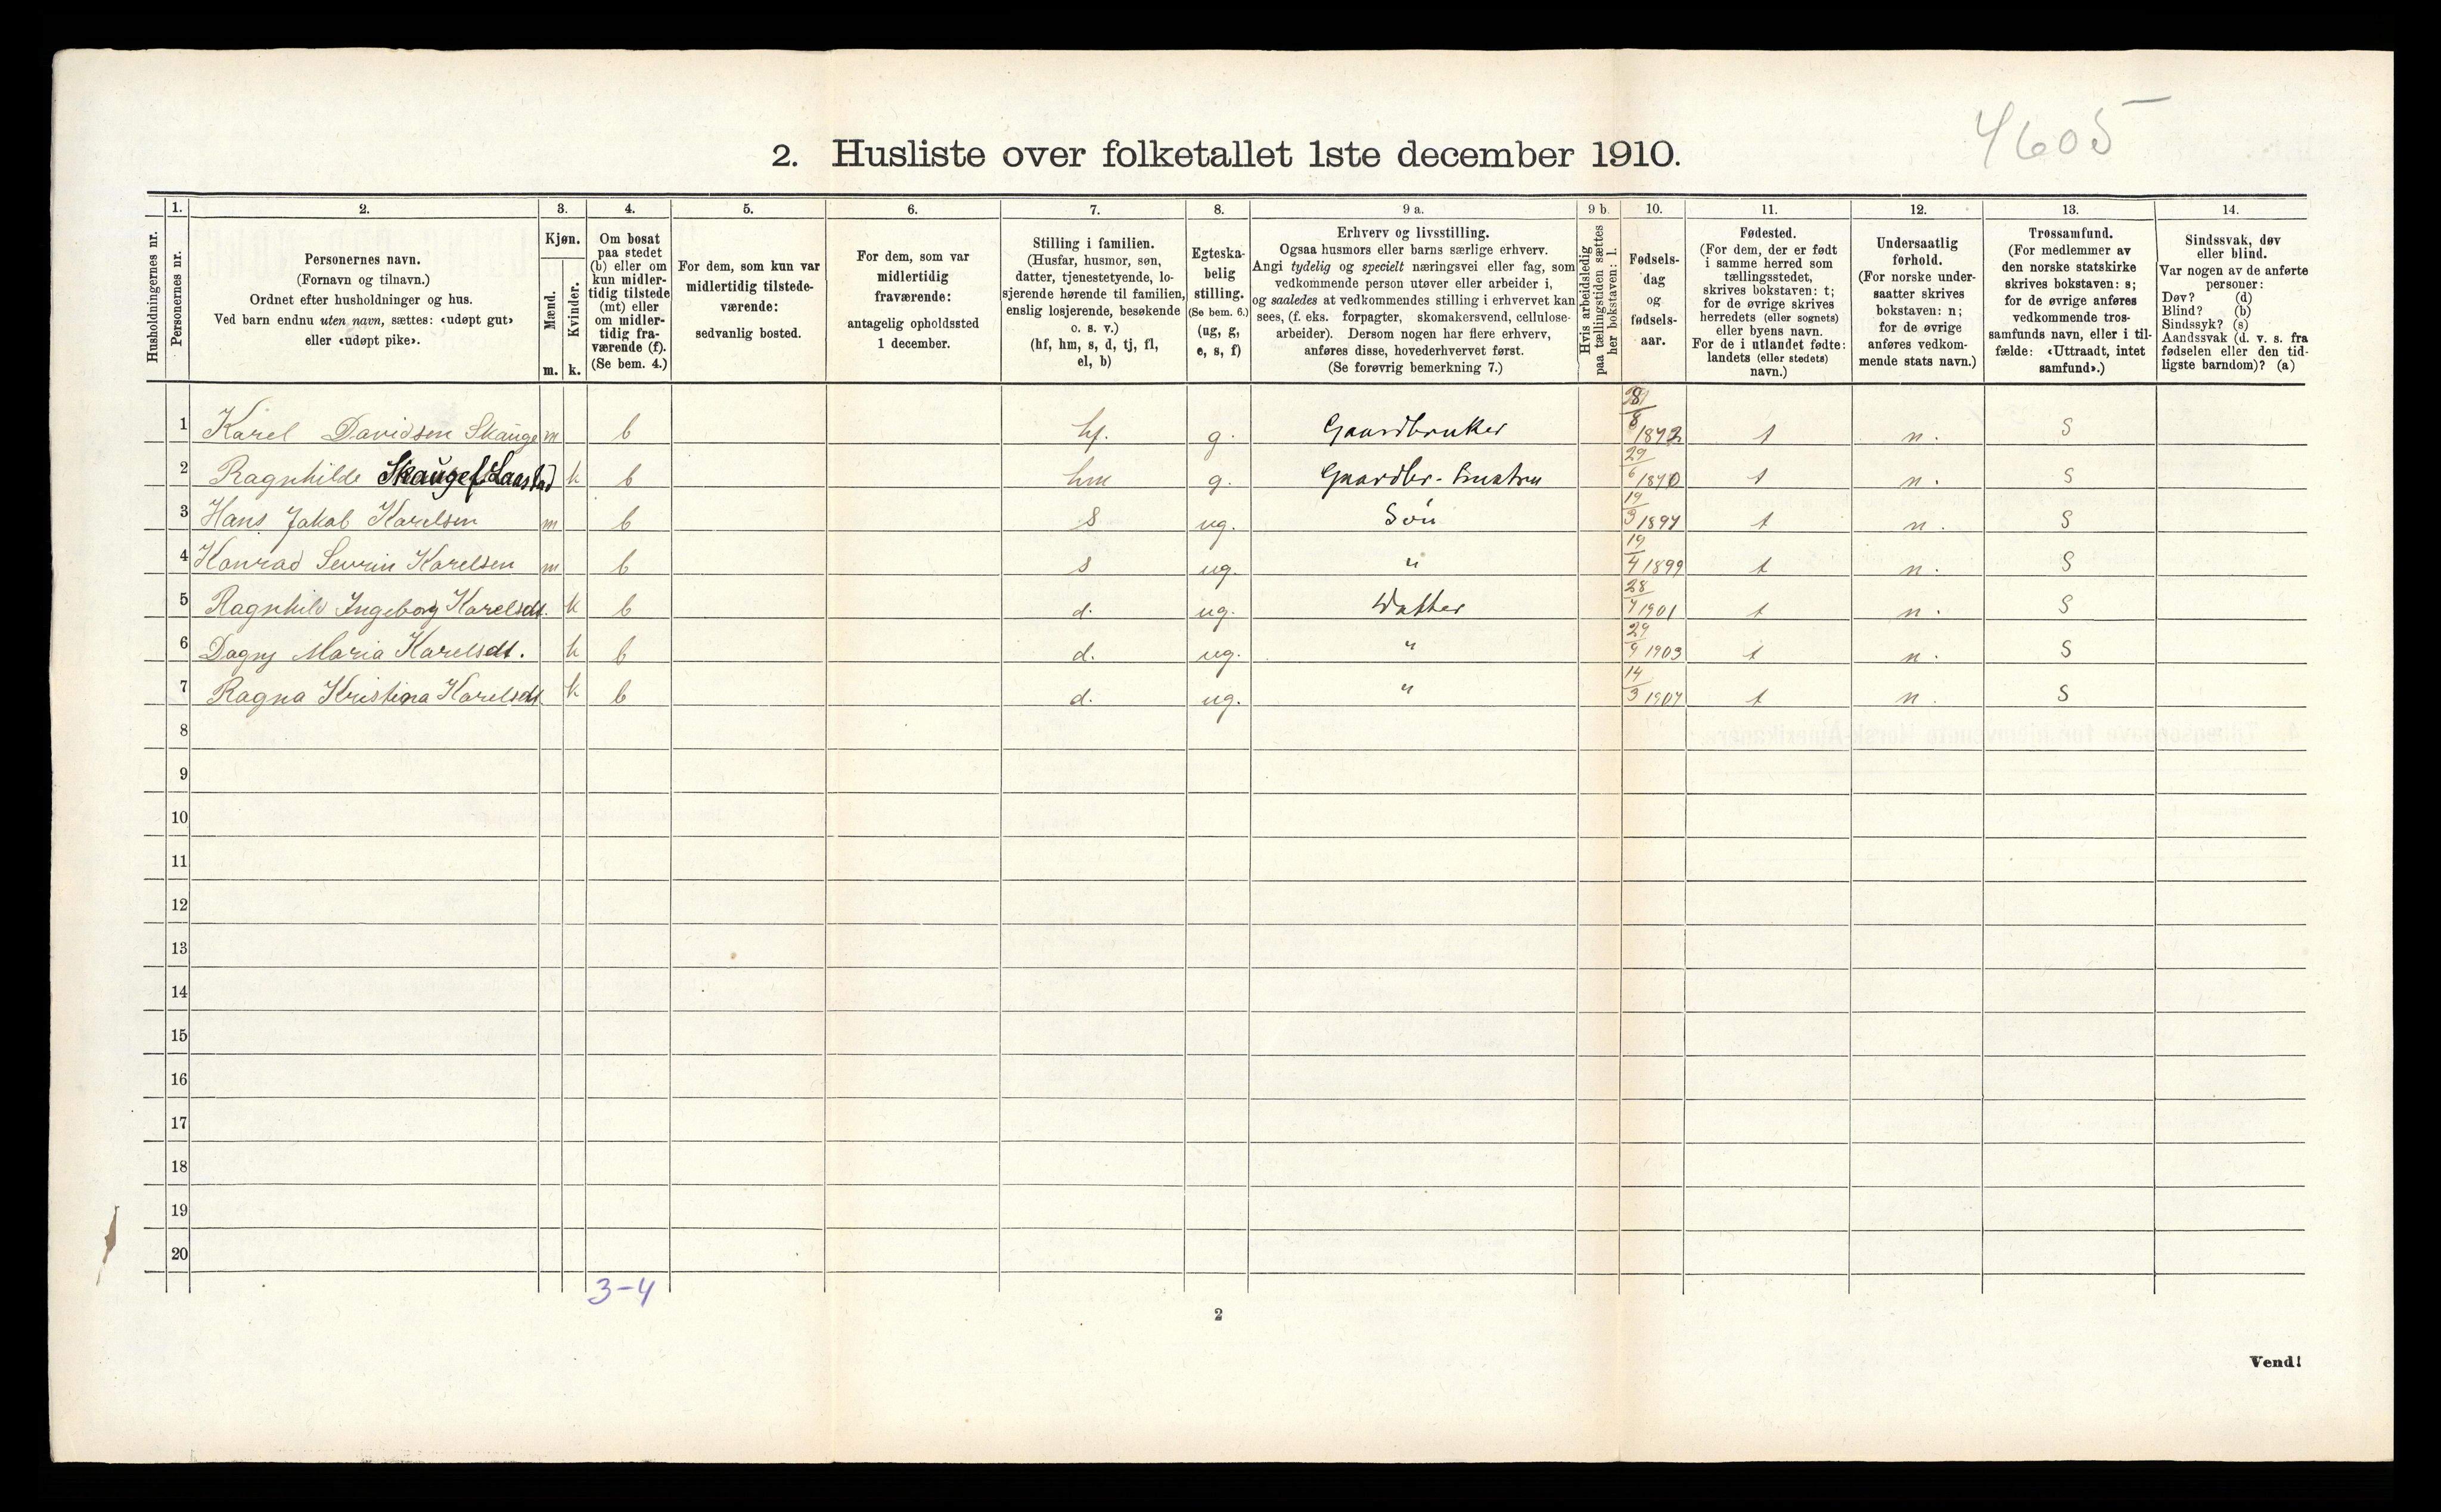 4605
2. Husliste over folketallet 1ste december 1910.
Husholdningernes nr.
1.
Personernes nr.
2.
Personernes navn.
(Fornavn og tilnavn.)
Ordnet efter husholdninger og hus.
Ved barn endnu uten navn, sættes: «udøpt gut»
eller «udøpt pike».
3.
Kjøn.
Mænd.
Kvinder.
m. k.
4.
Om bosat
paa stedet
(b) eller om
kun midler-
tidig tilstede
(mt) eller
om midler-
tidig fra-
værende (f).
(Se bem. 4.)
5.
For dem, som kun var
midlertidig tilstede-
værende:
sedvanlig bosted.
6.
For dem, som var
midlertidig
fraværende:
antagelig opholdssted
1 december.
7.
Stilling i familien.
(Husfar, husmor, søn,
datter, tjenestetyende, lo-
sjerende hørende til familien,
enslig losjerende, besøkende
o. s. v.)
(hf, hm, s, d, tj, fl,
el, b)
8.
Egteska-
belig
stilling.
(Se bem. 6.)
(ug, g,
e, s, f)
9 a.
Erhverv og livsstilling.
Ogsaa husmors eller barns særlige erhverv.
Angi tydelig og specielt næringsvei eller fag, som
vedkommende person utøver eller arbeider i,
og saaledes at vedkommendes stilling i erhvervet kan
sees, (f. eks. forpagter, skomakersvend, cellulose-
arbeider). Dersom nogen har flere erhverv,
anføres disse, hovederhvervet først.
(Se forøvrig bemerkning 7.)
9 b.
Hvis arbeidsledig
paa tællingstiden sættes
her bokstaven: l.
10.
Fødsels-
dag
og
fødsels-
aar.
11.
Fødested.
(For dem, der er født
i samme herred som
tællingsstedet,
skrives bokstaven: t;
for de øvrige skrives
herredets (eller sognets)
eller byens navn.
For de i utlandet fødte:
landets (eller stedets)
navn.)
12.
Undersaatlig
forhold.
(For norske under-
saatter skrives
bokstaven: n;
for de øvrige
anføres vedkom-
mende stats navn.)
13.
Trossamfund.
(For medlemmer av
den norske statskirke
skrives bokstaven: s;
for de øvrige anføres
vedkommende tros-
samfunds navn, eller i til-
fælde: «Uttraadt, intet
samfund».)
14.
Sindssvak, døv
eller blind.
Var nogen av de anførte
personer:
Døv? (d)
Blind? (b)
Sindssyk? (s)
Aandssvak (d. v. s. fra
fødselen eller den tid-
ligste barndom)? (a)
1 Karel Davidsen Skauge m b hf. g. Gaardbruker 8 1872 t n. S
2 Ragnhilde Skauge f. Laastad k b hm g. 29/6 1870 t n. S
3 Hans Jakob Karelsen m b s ug. Søn 19/3 1897 t n. S
4 Konrad Sevrin Karelsen m b s ug. " 19/4 1899 t n. S
5 Ragnhild Ingeborg Karelsdt. k b d. ug. Datter 28/7 1901 t n. S
6 Dagny Maria Karelsdt. k b d. ug. " 29/9 1903 t n. S
7 Ragna Kristina Karelsdt. k b d. ug. " 14/3 1907 t n. S
8
9
10
11
12
13
14
15
16
17
18
19
20
3-4
2
Vend!